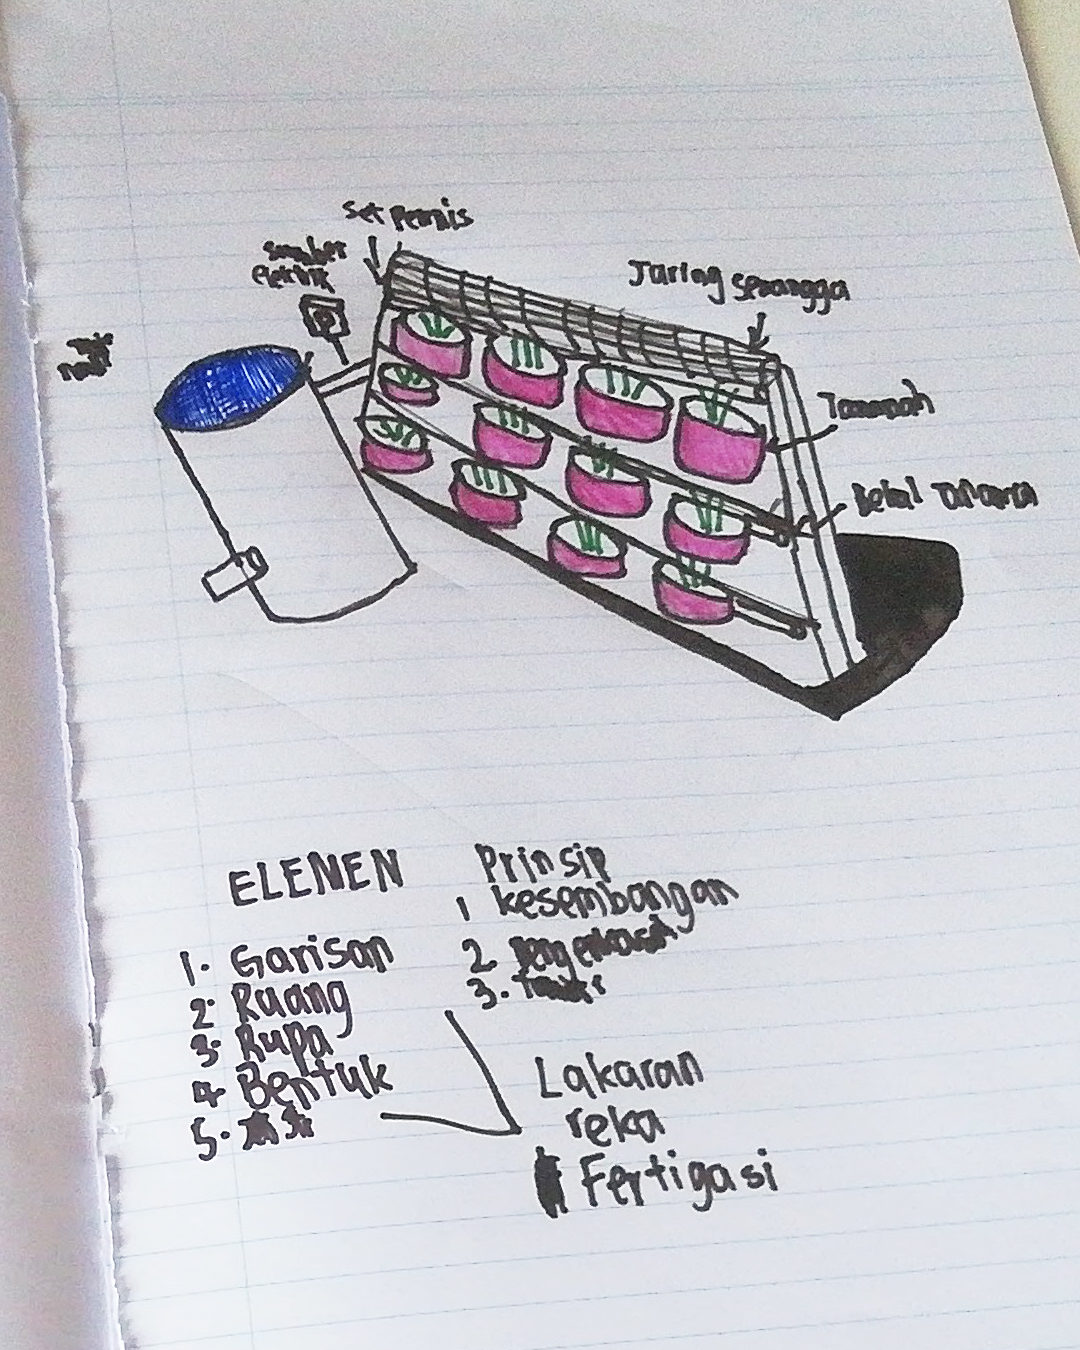 Set Pemis
sumber
elektrik
Jaring serangga
Tanaman
ELENEN
1. Garisan
2. Ruang
3. Rupa
4. Bentuk
5.
Prinsip
1 kesembangan
2.
3.
Lakaran
reka
Fertigasi